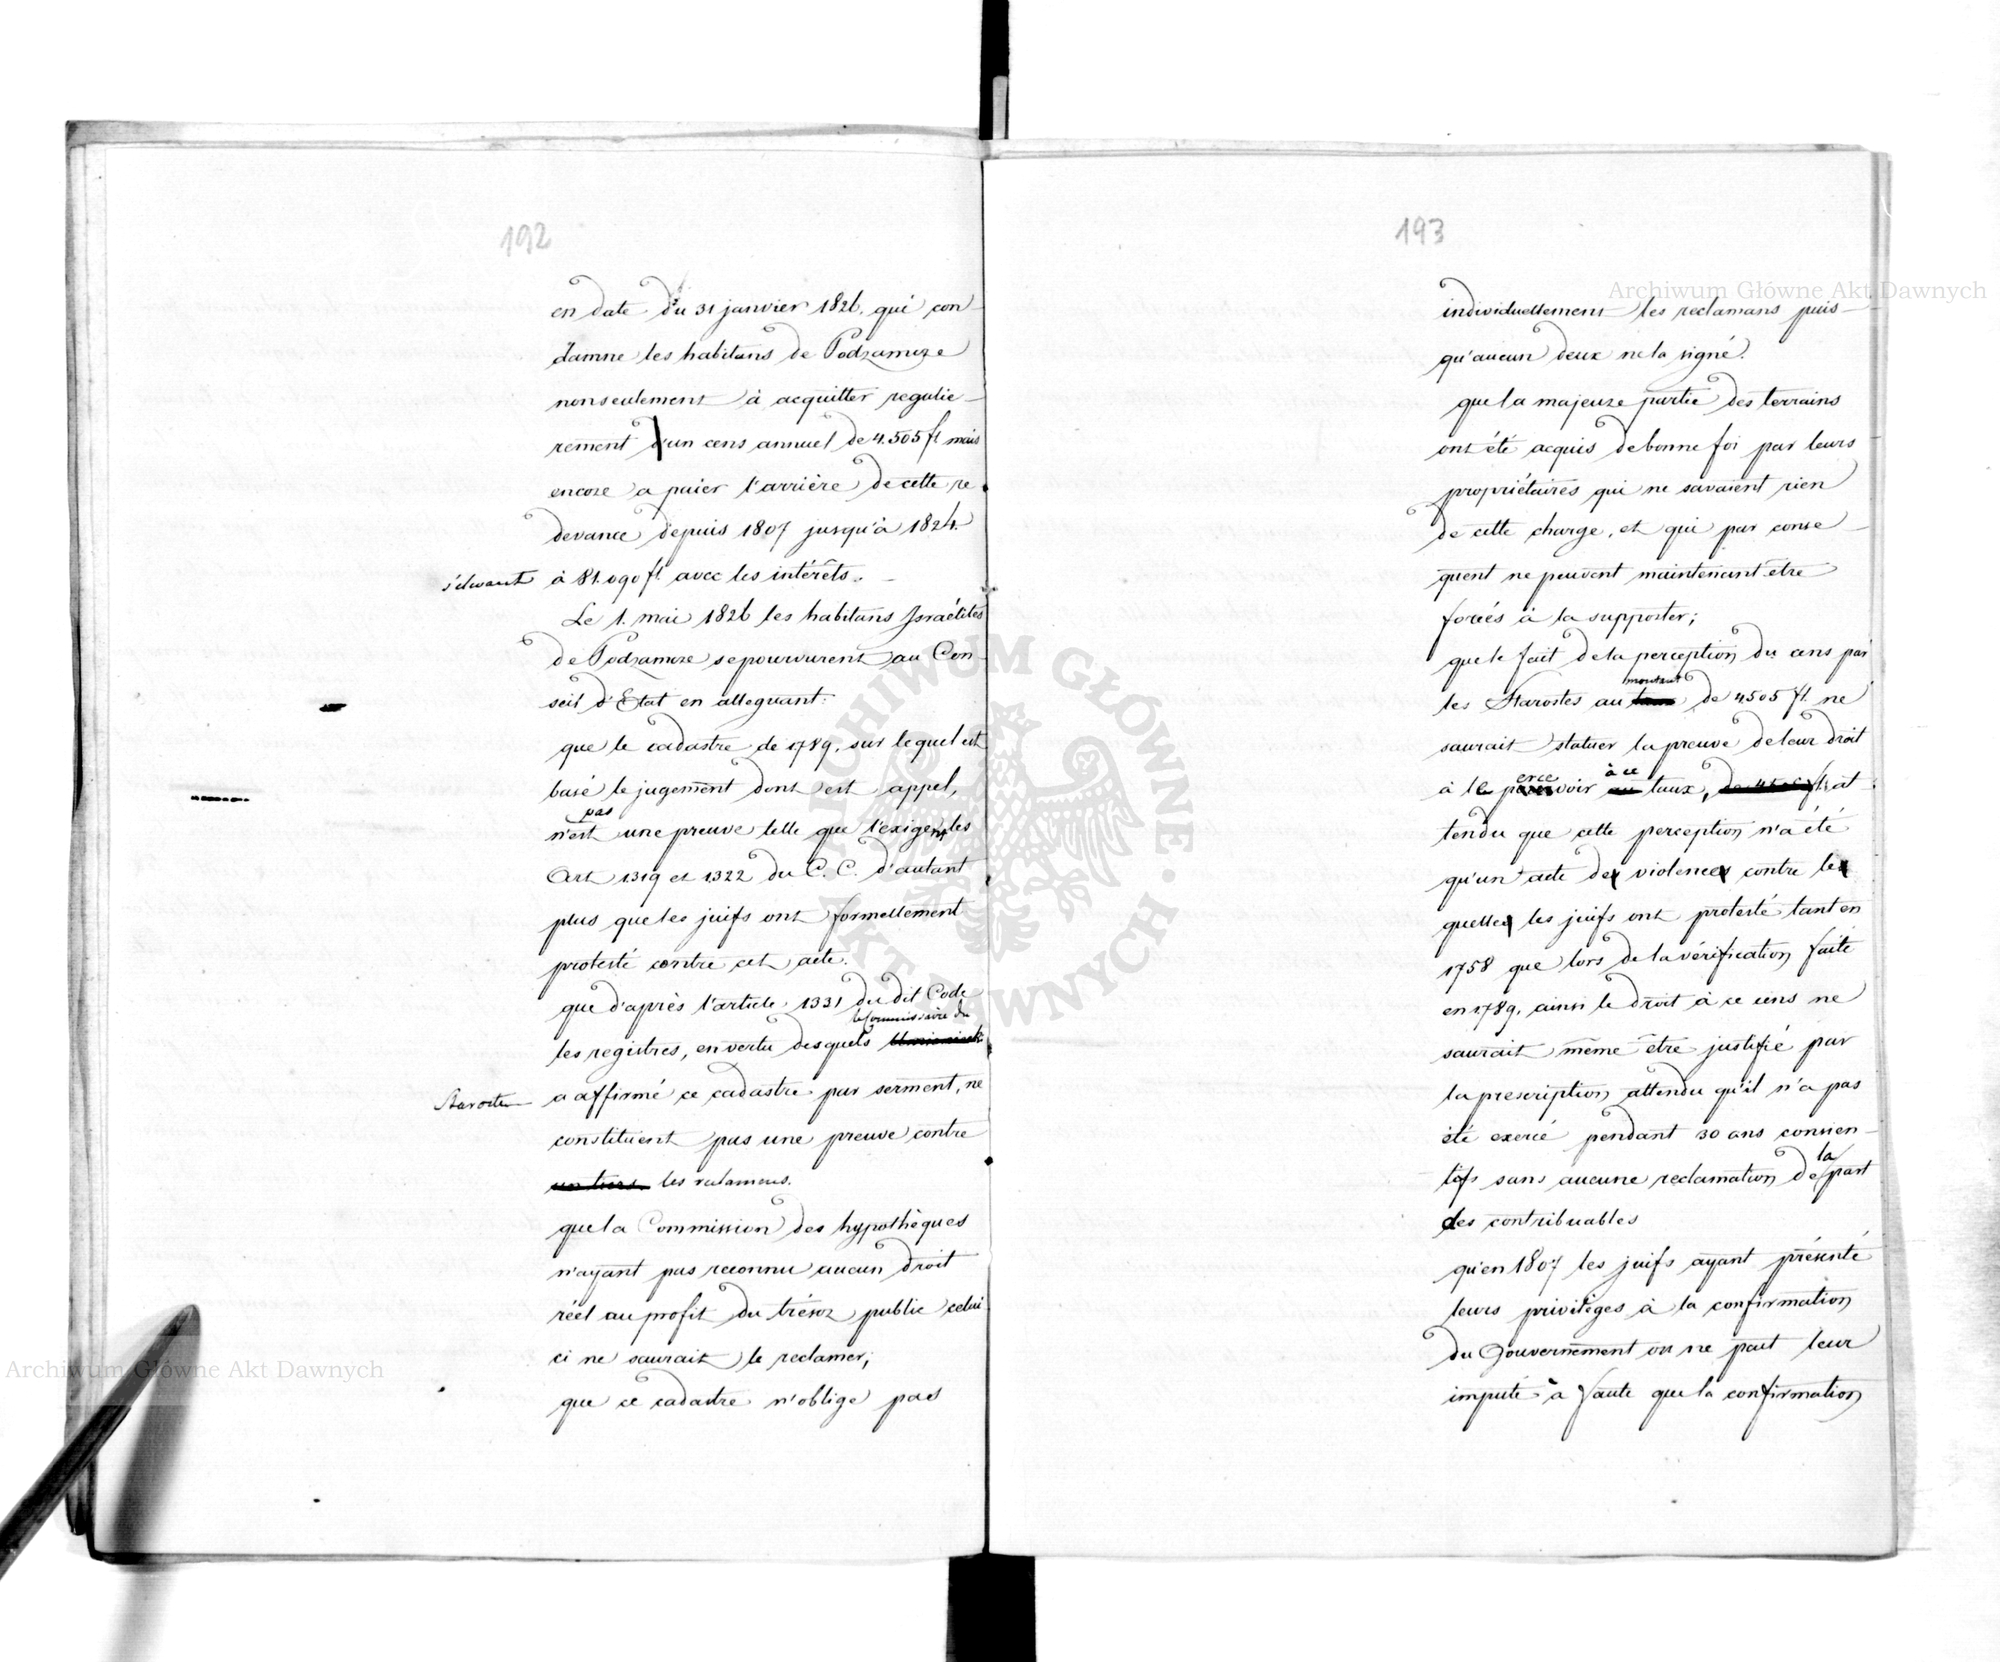 192
en date du 31 janvier 1826. qui con-
damne les habitans de Podzameze
nonseulement à acquitter regulie-
rement d'un cens annuel de 4.505 fl mais
encore a paier l'arrière de cette re
devance depuis 1807 jusqu'à 1824.
s'élevant à 81.090 fl avec les intérêts.
Le 1. mai 1826 les habitans Israélites
de Podzameze se pourvurent au Con-
seil d'Etat en alleguant:
que le cadastre de 1789, sur lequel est
basé le jugement dont est appel,
pas
n'est une preuve telle que l'exigent les
Art 1319 et 1322 du C. C. d'autant
plus que les juifs ont formellement
protesté contre cet acte.
que d'après l'article 1331 du dit Code
le Commissaire du
les registres, en vertu desquels
Staroste a affirmé ce cadastre par serment, ne
constituent pas une preuve contre
un tiers. les reclamans.
que la Commission des hypothèques
n'ayant pas reconnu aucun droit
réel au profit du trésor public celui
ci ne saurait le reclamer;
que ce cadastre n'oblige pas
193
individuellement les reclamans puis-
qu'aucun deux ne la signé.
que la majeure partie des terrains
ont été acquis de bonne foi par leurs
propriétaires qui ne savaient rien
de cette charge, et qui par conse-
quent ne peuvent maintenant être
forcés à la supporter;
que le fait de la perception du cens par
montant
les Starostes au taux de 4505 fl. ne
saurait statuer la preuve de leur droit
erce à ce
à le percevoir au taux, de 4505 fl. at
tendu que cette perception n'a été
qu'un acte de violence contre la
quelle les juifs ont protesté tant en
1758 que lors de la vérification faite
en 1789, ainsi le droit à ce cens ne
saurait même être justifié par
la prescription, attendu qu'il n'a pas
été exercé pendant 30 ans consien-
la
tifs sans aucune reclamation de part
des contribuables
qu'en 1807 les juifs ayant présenté
leurs privilèges à la confirmation
du Gouvernement on ne peut leur
imputé à faute que la confirmation
Archiwum Główne Akt Dawnych
Archiwum Główne Akt Dawnych
ARCHIWUM GŁÓWNE AKT DAWNYCH